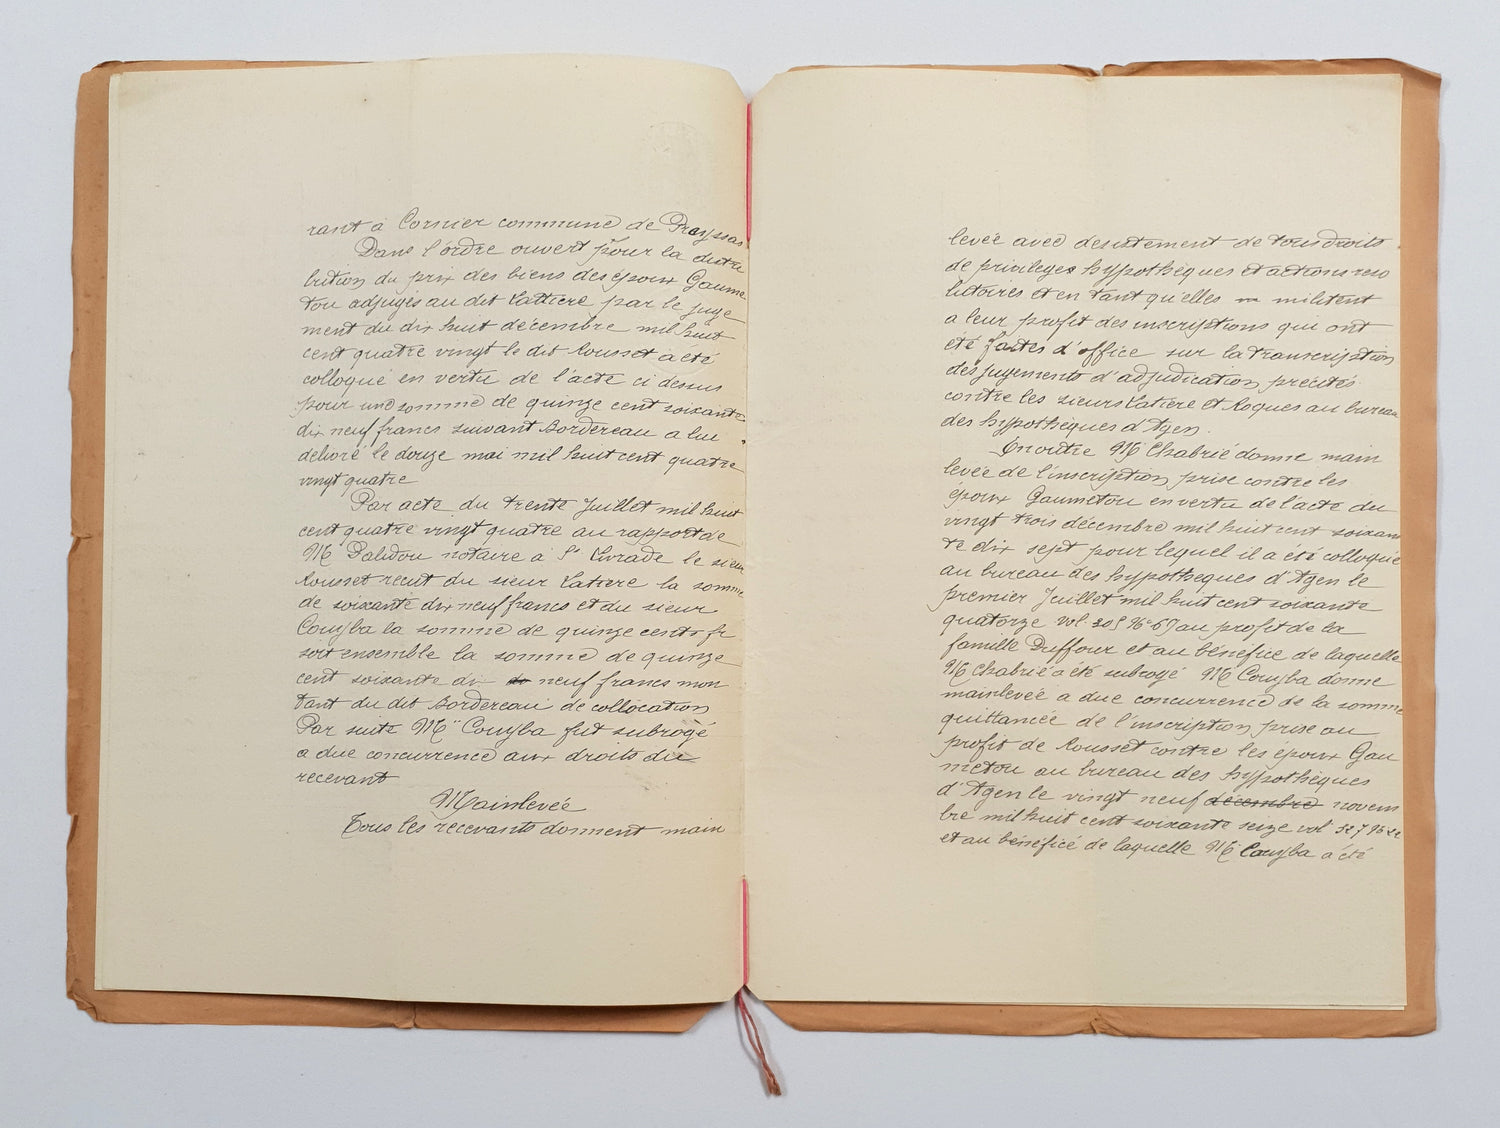 rant à Cornier commune de Prayssas
Dans l'ordre ouvert pour la distri
bution du prix des biens des époux Gaume
tou adjugés au dit Latiere par le juge
ment du dix huit décembre mil huit
cent quatre vingt le dit Rousset a été
colloqué en vertu de l'acte ci dessus
pour une somme de quinze cent soixante
dix neuf francs suivant bordereau a lui
délivré le douze mai mil huit cent quatre
vingt quatre
Par acte du trente Juillet mil huit
cent quatre vingt quatre au rapport de
Me Palidou notaire à Ste Livrade le sieur
Rousset recut du sieur Latiere la somme
de soixante dix neuf francs et du sieur
Couyba la somme de quinze cents fr
soit ensemble la somme de quinze
cent soixante dix neuf francs mon
tant du dit bordereau de collocation
Par suite Mr Couyba fut subrogé
a due concurrence aux droits du
recevant
Mainlevée
Tous les recevants donnent main
levée avec desistement de tous droits
de privileges hypothèques et actions reso
lutoires et en tant qu'elles militent
a leur profit des inscriptions qui ont
été faites d'office sur la transcription
des jugements d'adjudication précités
contre les sieurs Latiere et Roques au bureau
des hypothèques d'Agen.
En outre Mr Chabrié donne main
levée de l'inscription prise contre les
époux Gaumetou en vertu de l'acte du
vingt trois décembre mil huit cent soixan
te dix sept pour lequel il a été colloqué
au bureau des hypothèques d'Agen le
premier Juillet mil huit cent soixante
quatorze vol 305 No 69 au profit de la
famille Duffour et au bénéfice de laquelle
Mr Chabrié a été subrogé Mr Couyba donne
mainlevée a due concurrence de la somme
quittancée de l'inscription prise au
profit de Rousset contre les époux Gau
metou au bureau des hypothèques
d'Agen le vingt neuf décembre novem
bre mil huit cent soixante seize vol 327 No 22
et au bénéfice de laquelle Mr Couyba a été